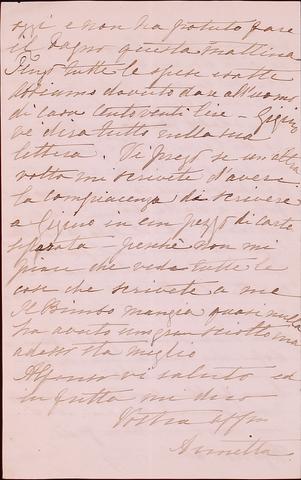 oggi e non ha potuto fare
il bagno questa mattina
tutte le spese
abbiamo dovuto dare all'uomo
di casa centoventi lire – Gegino
ve dira tutto nella sua
lettera. Vi prego se un altra
volta mi scrivete d'avere
la compiacenza di scrivere
a Gigino in un pezzo di carta
separata – perche non mi
piace che veda tutte le
cose che scrivete a me
Il Bimbo mangia quasi nulla
ha avuto un gran ma
adesso sta meglio
Alfonso vi saluto ed
in fretta mi dico
Vostra affma
Annetta